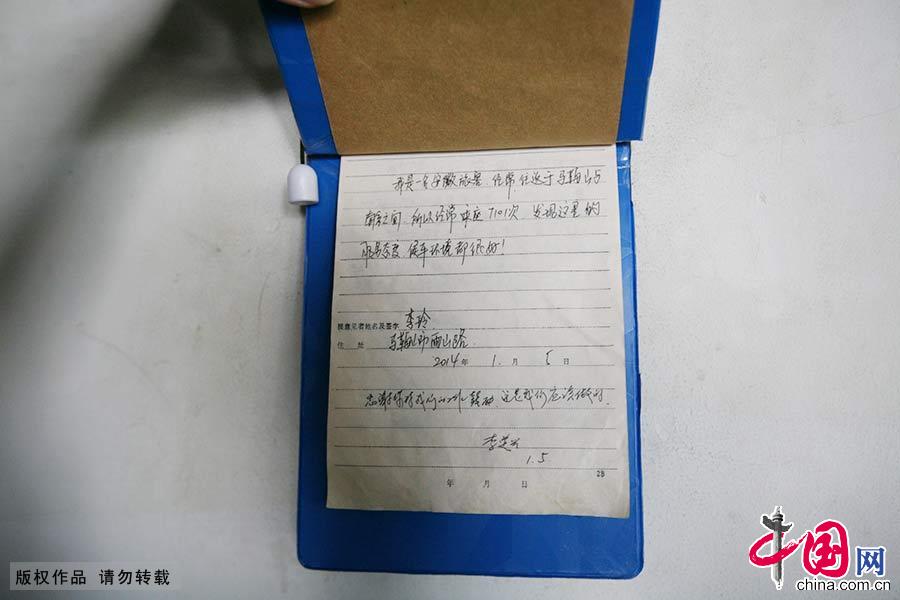 我是一名安徽旅客，经常往返于马鞍山与
南京之间，所以经常乘座7101次，发现这里的
服务态度、候车环境都很好！
提意见者姓名及签字 李玲
住 处 马鞍山市雨山路
2014年 1 月 5 日
感谢
我们的工作
这是我们应该做的。
李
1.5
28
年 月 日
版权作品 请勿转载
中国网
china.com.cn